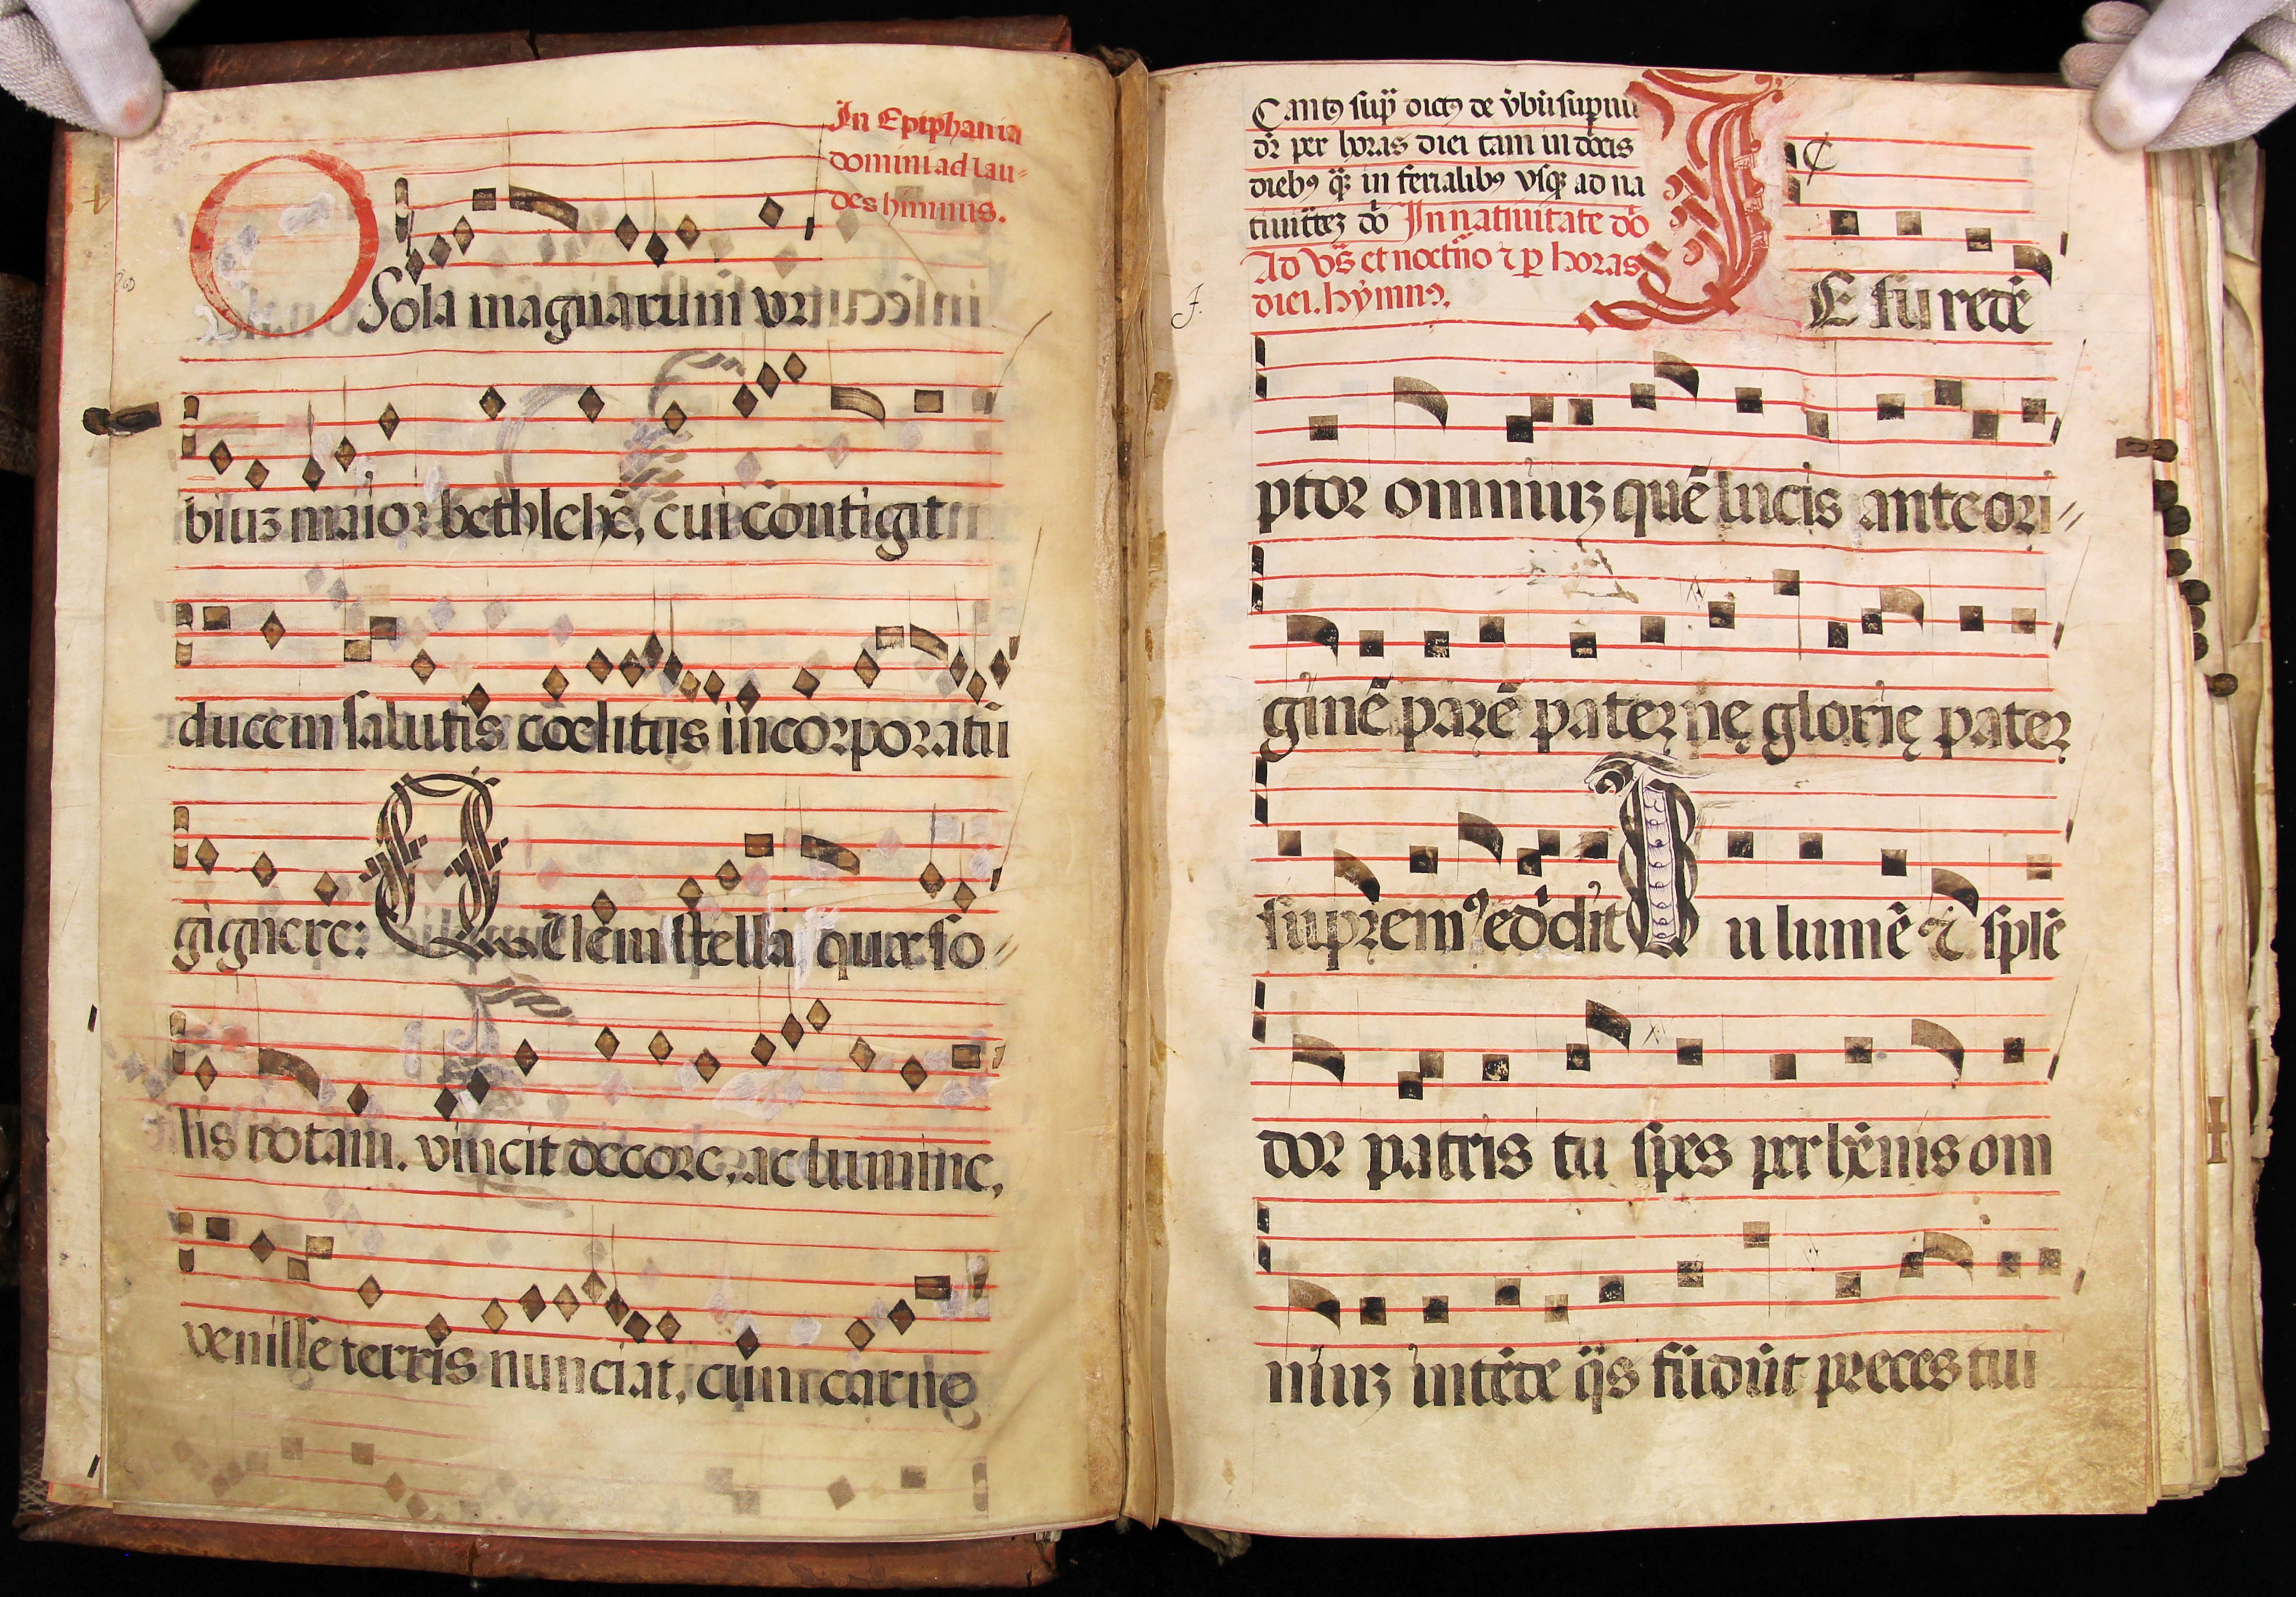 In Epiphania
domini ad lau-
des himnus.
O Sola magnarum vr
biuʒ maior bethlehē, cui contigit
ducem salutis coelitus incorporatū
gignere: Quem stella quæ so-
lis rotam. vincit decore, ac lumine,
venisse terris nunciat, cum carne
Cantꝰ sup̄ dictꝰ de v̄bū supnū
dr̄ per horas diei tam in dōcis
diebꝰ q̄ʒ in ferialibꝰ vsqʒ ad na
tiuitteʒ dō In natiuitate dō
Ad vs̄ et noctn̄o ⁊ p horas
diei. hẏmnꝰ.
J E su redē
ptor omniuʒ quē lucis ante ori-
ginē parē paternę glorię pater
supremꝰ edidit Tu lumē ⁊ splē
dor patris tu spes perhēnis om
niuʒ intēde q̄s fūdūt preces tui